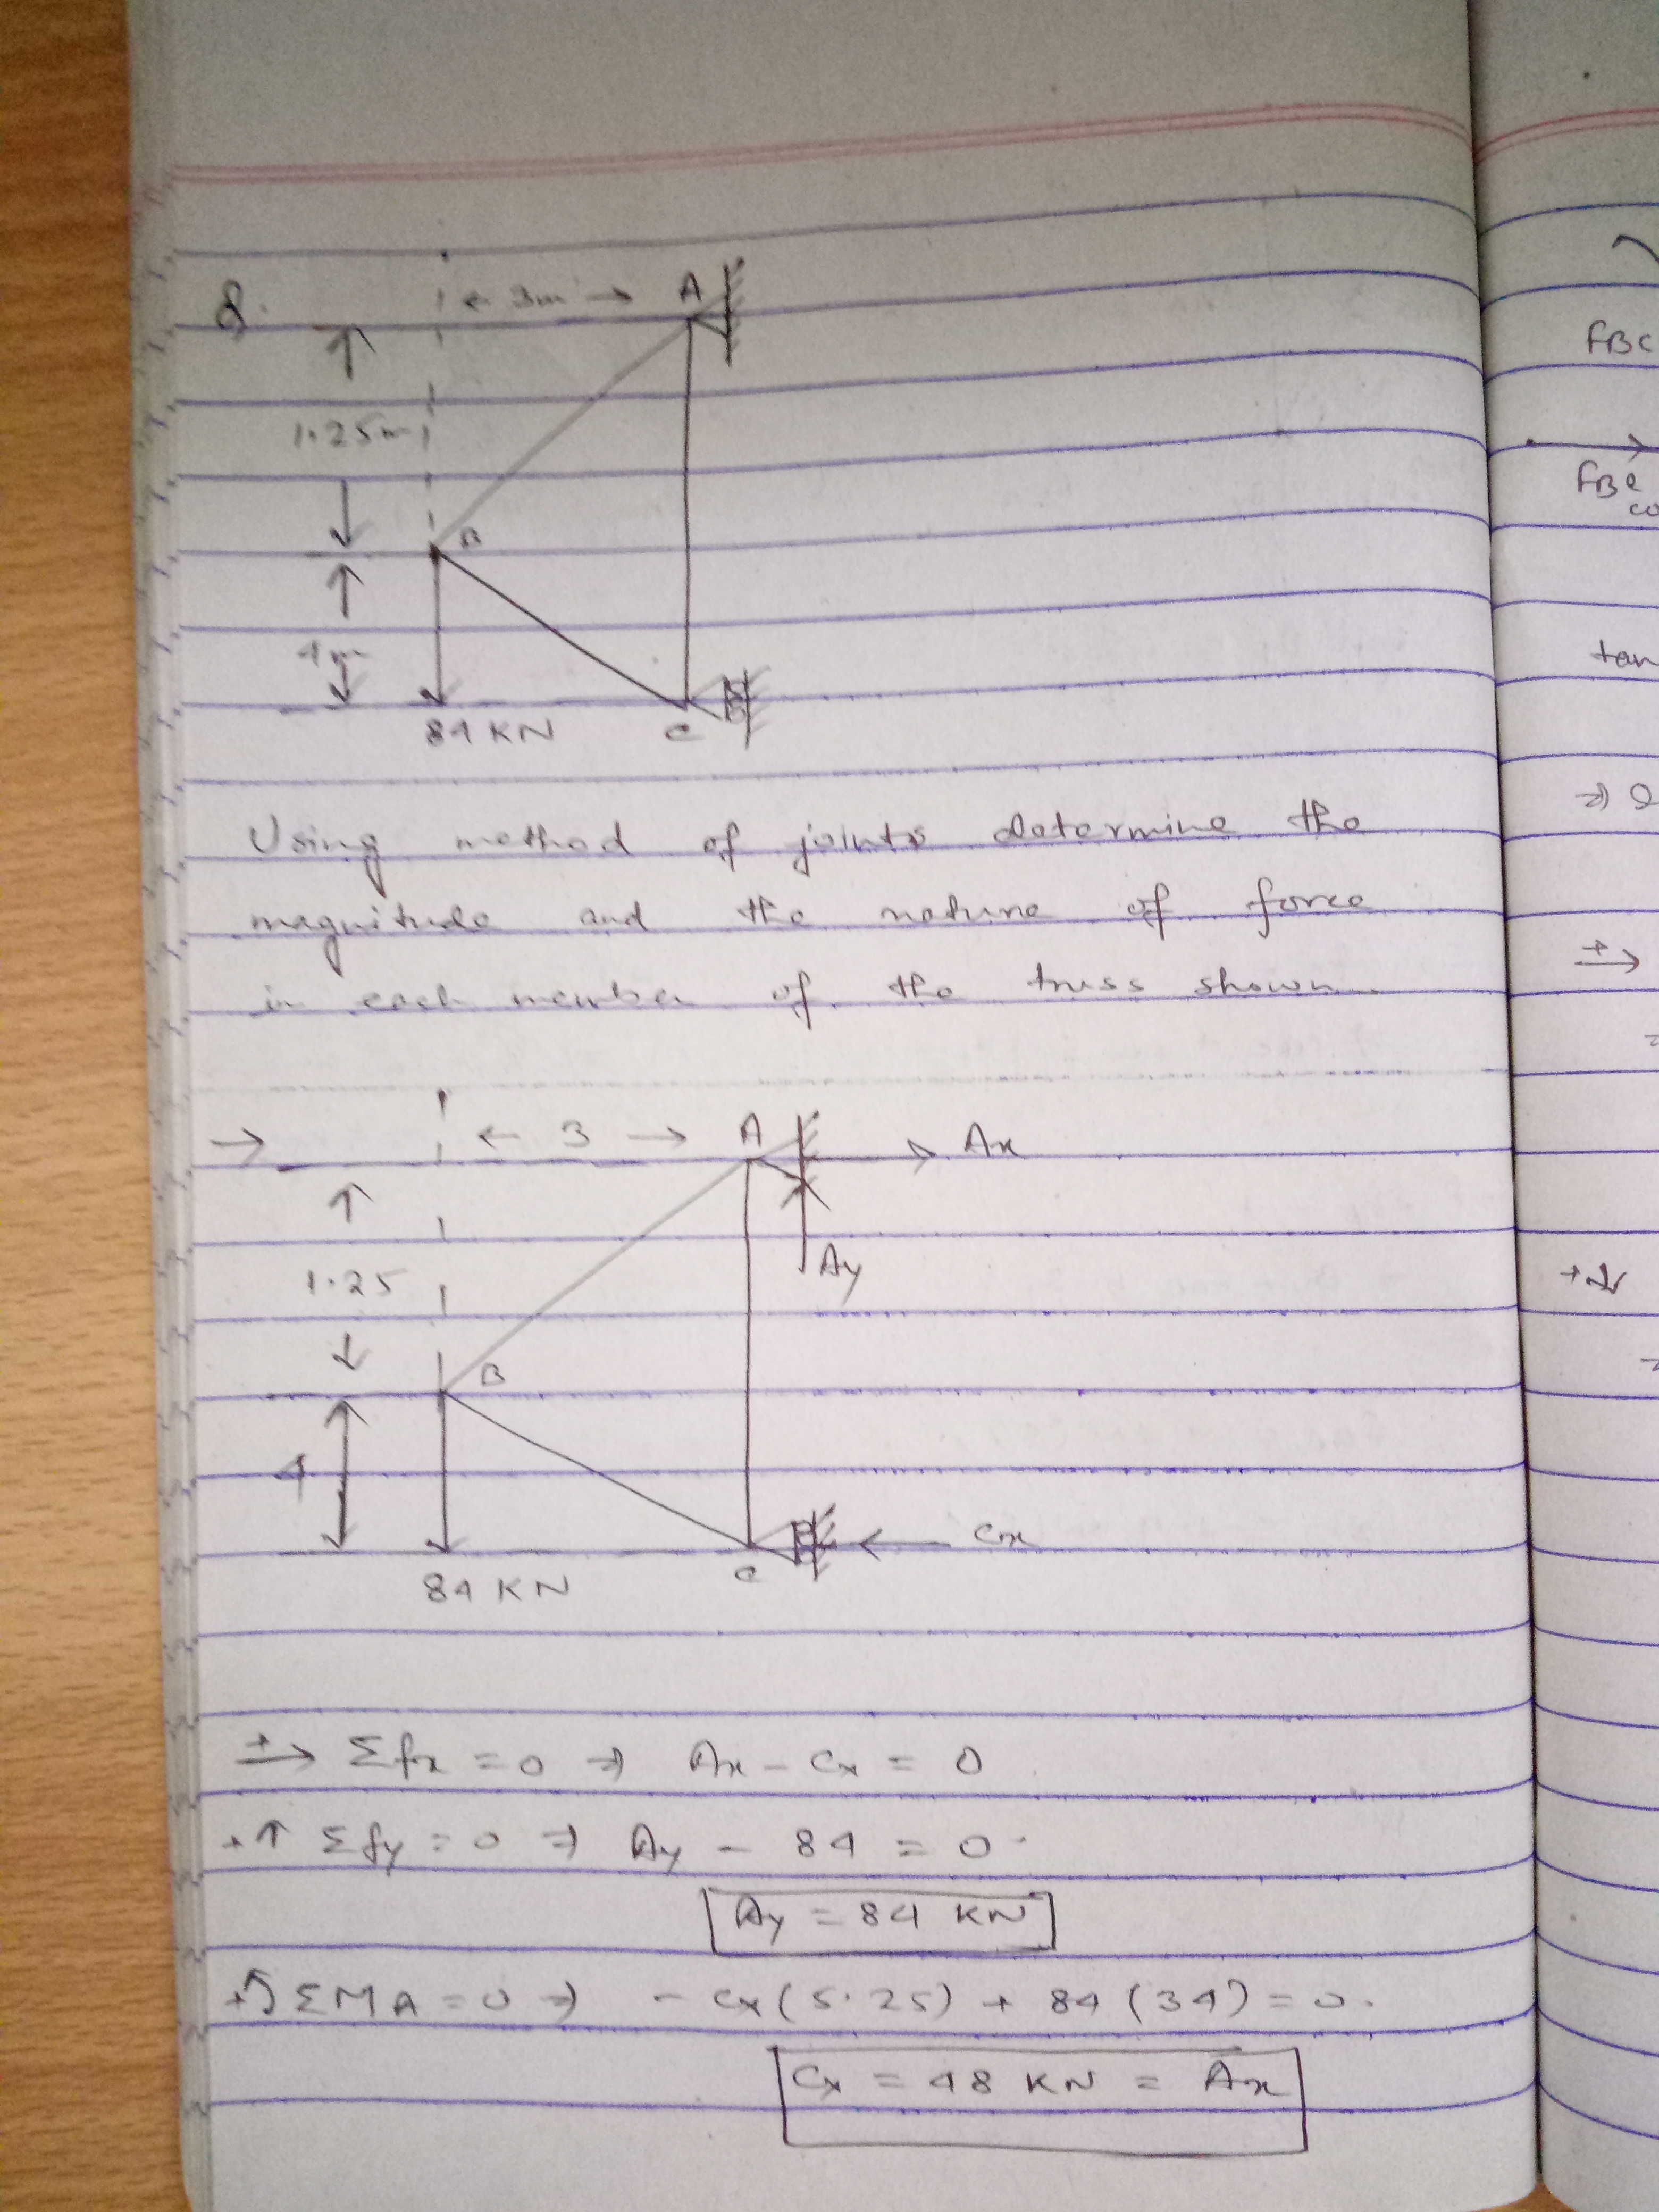 8.
← 3m → A
1.25m
B
4m
84 KN C
Using method of joints determine the
magnitude and the nature of force
in each member of the truss shown.
→ ← 3 → A Ax
Ay
1.25
B
4
Cx
84 KN C
+→ Σfx = 0 ⇒ Ax - Cx = 0
+↑ Σfy = 0 ⇒ Ay - 84 = 0.
Ay = 84 KN
+↺ ΣMA = 0 ⇒ - Cx (5.25) + 84 (34) = 0.
Cx = 48 KN = Ax
FBC
FBC
co
tan
⇒
+→
+↓